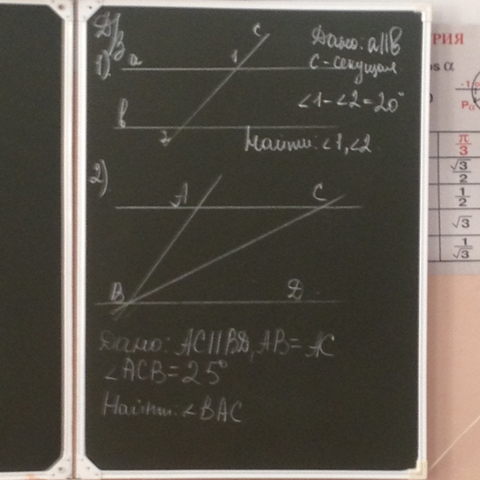 Д/з
1)
a
c
1
b
2
Дано: a||b
c-секущая
∠1-∠2=20°
Найти: ∠1, ∠2.
2)
A
C
B
D
Дано: AC||BD, AB=AC
∠ACB=25°
Найти: ∠BAC
РИЯ
os α
π/3
√3/2
1/2
√3
1/√3